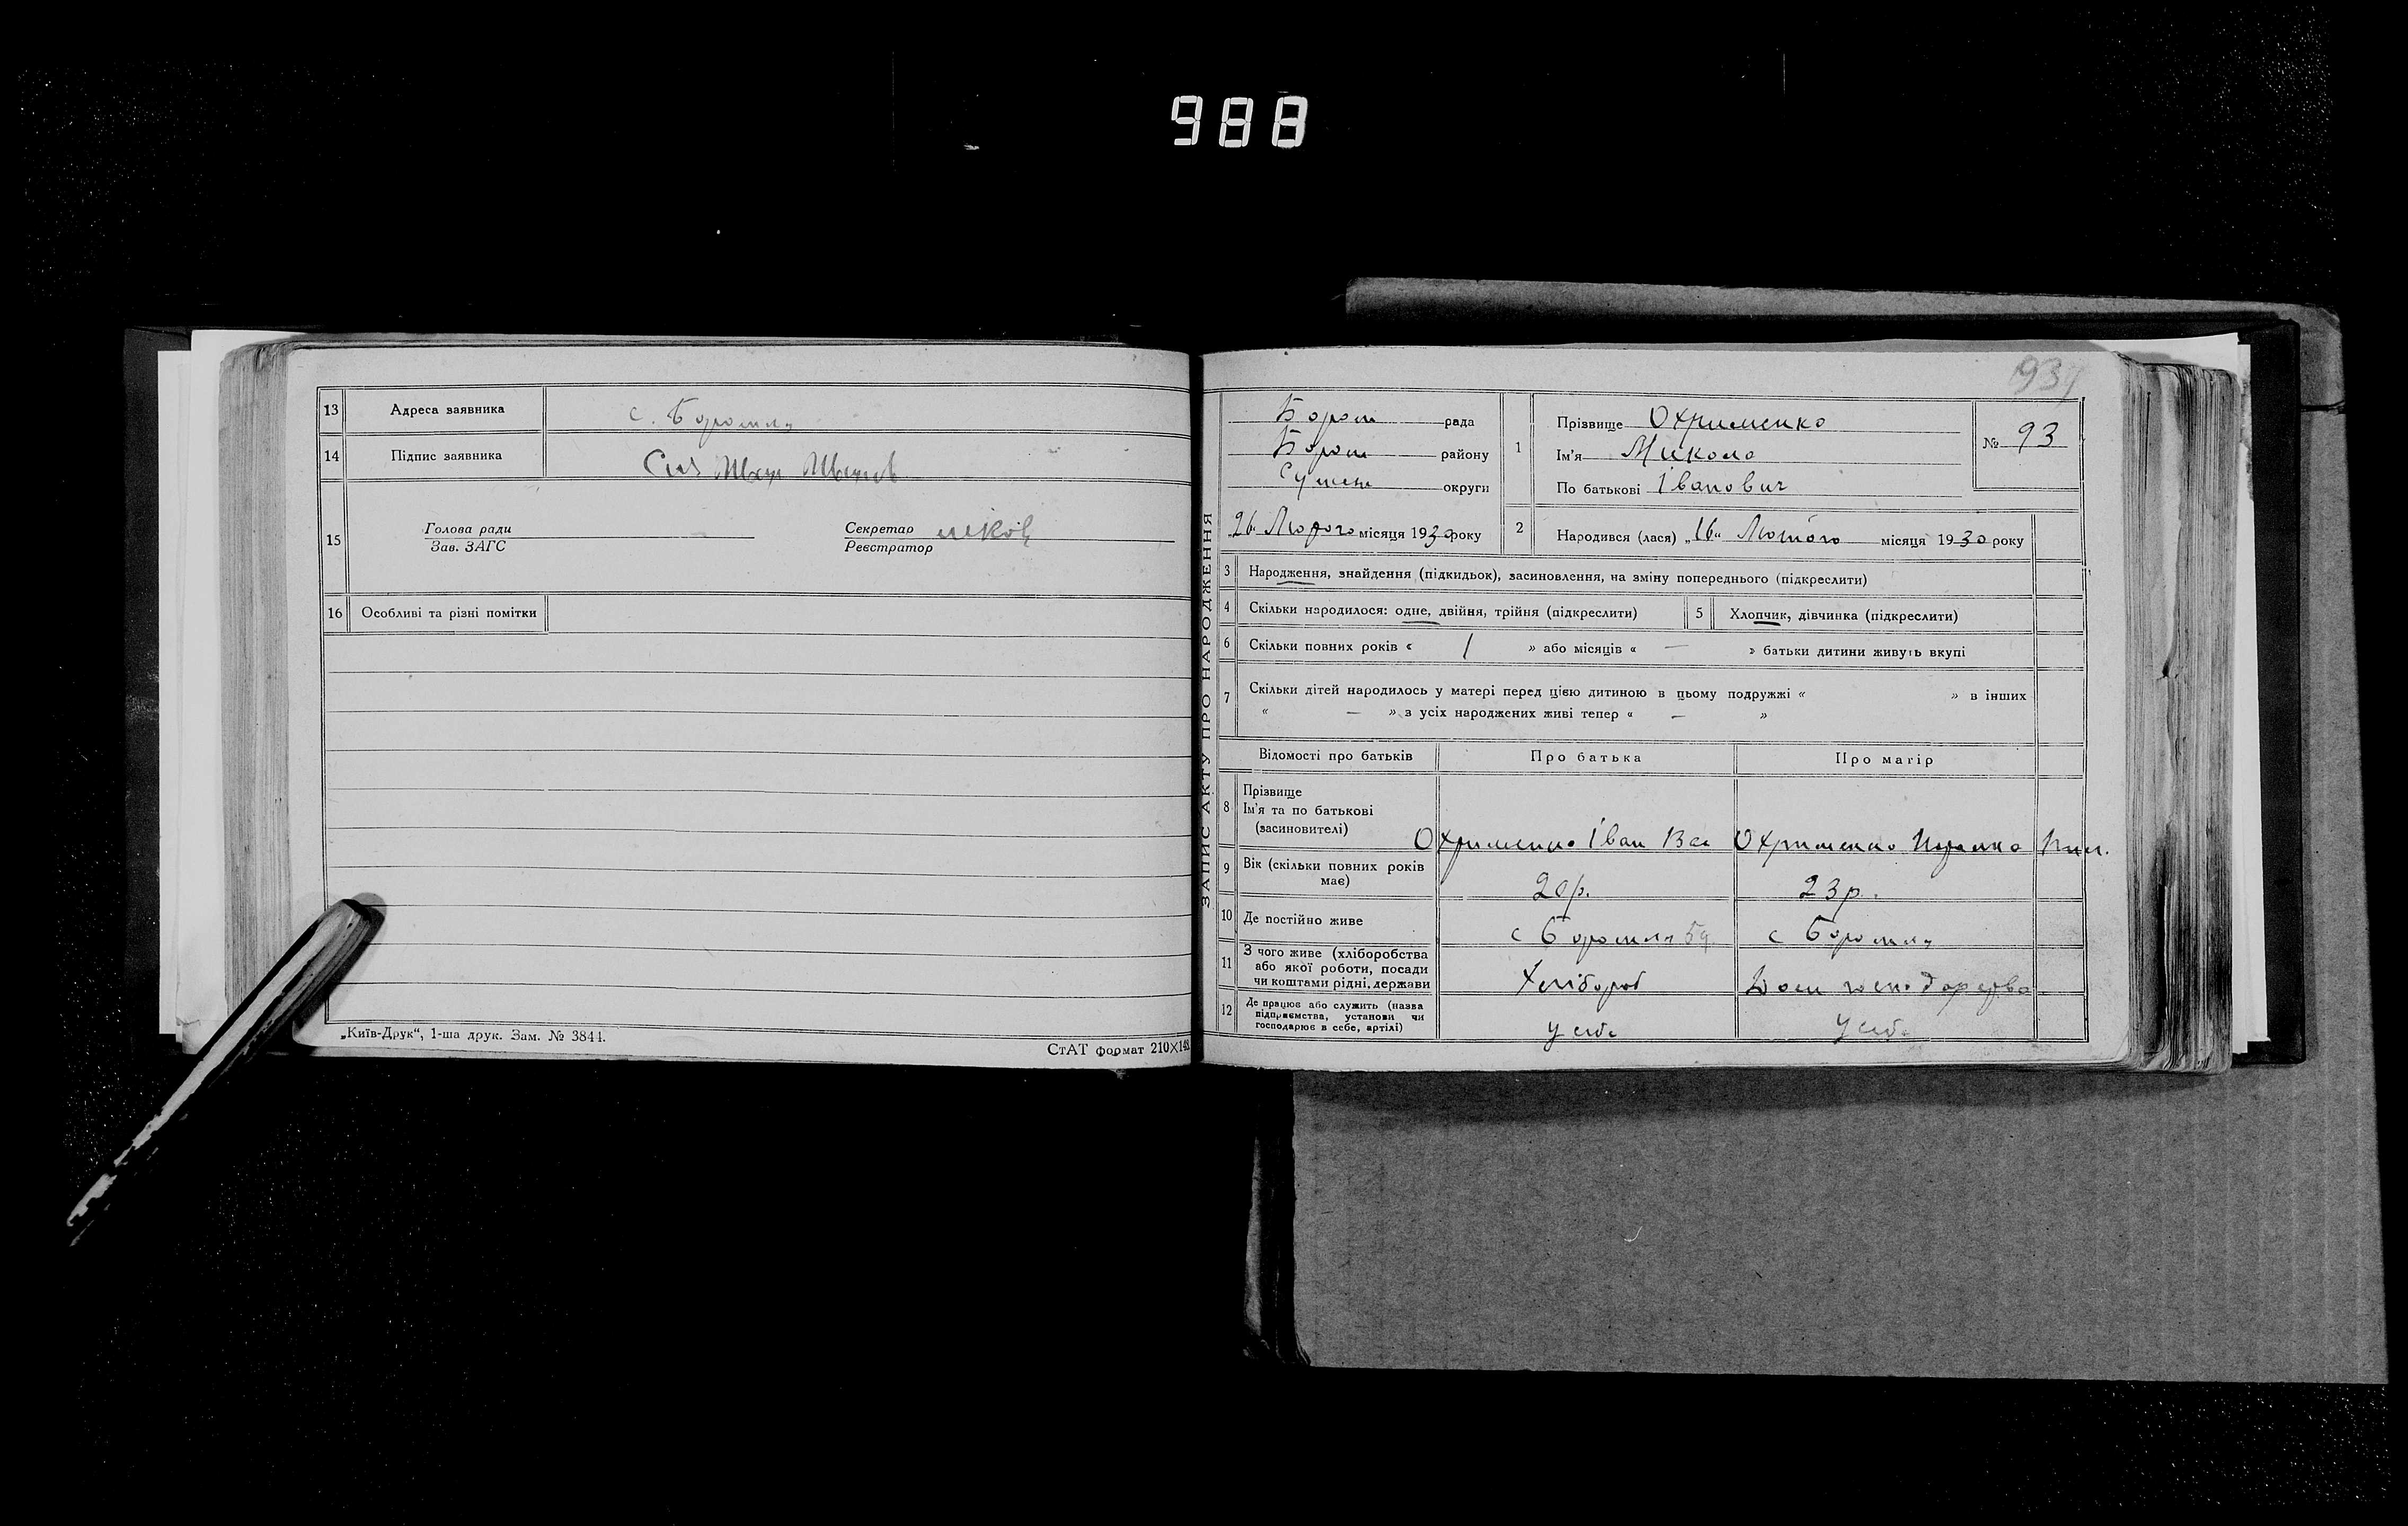 988
13 Адреса заявника с. Боромля
14 Підпис заявника
15 Голова ради Секретар
Зав. ЗАГС Реєстратор
16 Особливі та різні помітки
„Київ-Друк“, 1-ша друк. Зам. № 3844.
СтАТ формат 210X148
ЗАПИС АКТУ ПРО НАРОДЖЕННЯ
937
Бором рада
Бором району
Сумськ округи
„26 Лютого місяця 1930 року
1 Прізвище Охрименко
Ім'я Микола
По батькові Іванович
№ 93
2 Народився (лася) „16“ Лютого місяця 1930 року
3 Народження, знайдення (підкидьок), засиновлення, на зміну попереднього (підкреслити)
4 Скільки народилося: одне, двійня, трійня (підкреслити) 5 Хлопчик, дівчинка (підкреслити)
6 Скільки повних років « 1 » або місяців « — » батьки дитини живуть вкупі
7 Скільки дітей народилось у матері перед цією дитиною в цьому подружжі « » в інших
« — » з усіх народжених живі тепер « — »
Відомості про батьків Про батька Про матір
8 Прізвище
Ім'я та по батькові
(засиновителі) Охрименко Іван Вас Охрименко
9 Вік (скільки повних років має) 20р. 23р.
10 Де постійно живе с Боромля с Боромля
11 З чого живе (хліборобства
або якої роботи, посади
чи коштами рідні, держави Хлібороб Дом господарство
12 Де працює або служить (назва
підприємства, установи чи
господарює в себе, артілі) у себе у себе